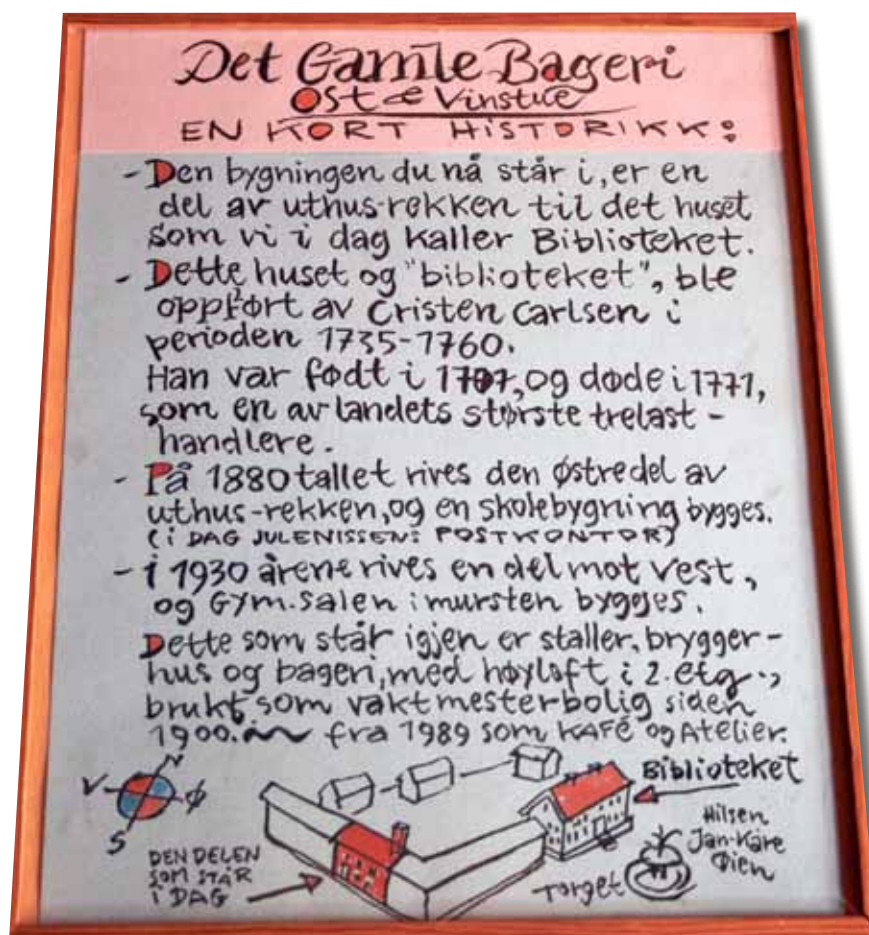 Det Gamle Bageri
Ost & Vinstue
EN KORT HISTORIKK:
- Den bygningen du nå står i, er en
del av uthus-rekken til det huset
som vi i dag kaller Biblioteket.
- Dette huset og "biblioteket", ble
oppført av Cristen Carlsen i
perioden 1735-1760.
Han var født i 1707, og døde i 1771,
som en av landets største trelast-
handlere.
- På 1880 tallet rives den østre del av
uthus-rekken, og en skolebygning bygges.
(i DAG JULENISSENS POSTKONTOR)
- i 1930 årene rives en del mot vest,
og Gym.salen i mursten bygges.
Dette som står igjen er staller, brygger-
hus og bageri, med høyloft i 2. etg.,
brukt som vaktmesterbolig siden
1900. fra 1989 som KAFÉ og Atelier.
N
V Ø
S
Biblioteket
DEN DELEN
SOM STÅR
i DAG
Torget
Hilsen
Jan-Kåre
Øien